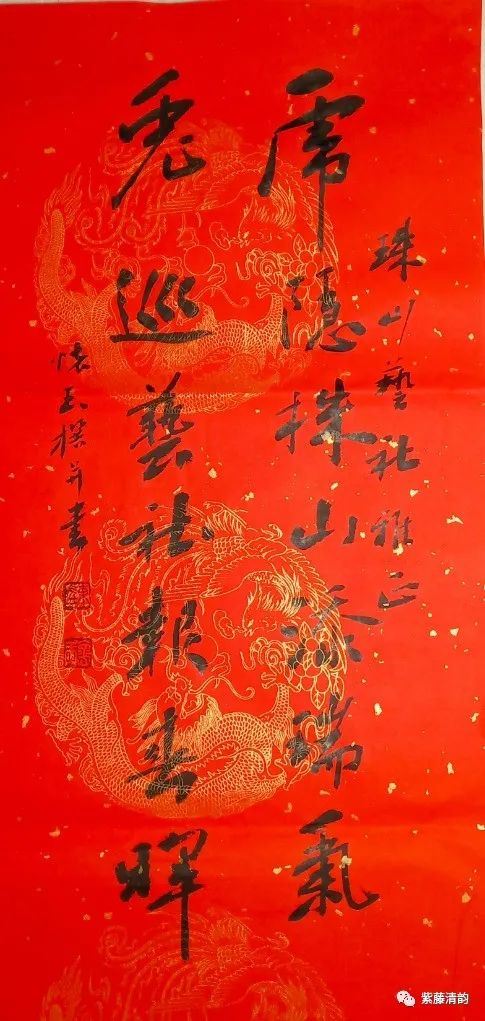 珠山藝社雅正
虎隱珠山添瑞氣
兔巡藝社報春暉
懷玉撰并書
紫藤清韵